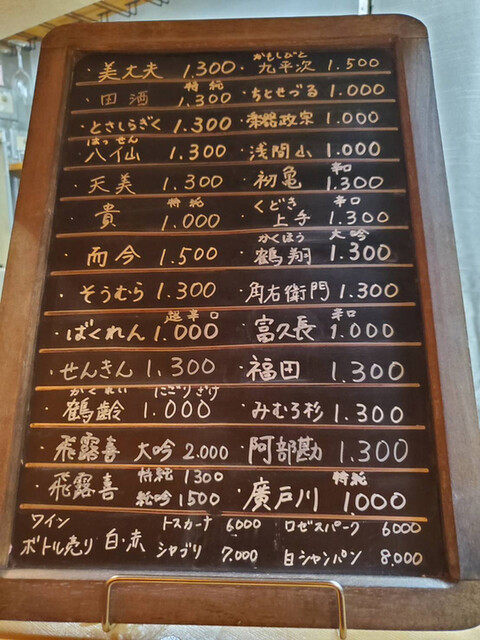 ・美丈夫 1.300
特純
・田酒 1.300
・とさしらぎく 1.300
はっせん
・八仙 1.300
・天美 1.300
特純
・貴 1.000
・而今 1.500
・そうむら 1.300
超辛口
・ばくれん 1.000
・せんきん 1.300
かくれい にごりざけ
・鶴齢 1.000
・飛露喜 大吟 2.000
・飛露喜 特純 1300
純吟 1500
かもしびと
・九平次 1.500
・ちとせづる 1.000
政宗 1.000
・浅間山 1.000
辛口
・初亀 1.300
くどき 辛口
・上手 1.300
かくほう 大吟
・鶴翔 1.300
・角右衛門 1.300
辛口
・富久長 1.000
・福田 1.300
・みむろ杉 1.300
・阿部勘 1.300
特純
・廣戸川 1.000
ワイン
ボトル売り 白・赤
トスカーナ 6000
シャブリ 7.000
ロゼスパーク 6000
白シャンパン 8,000